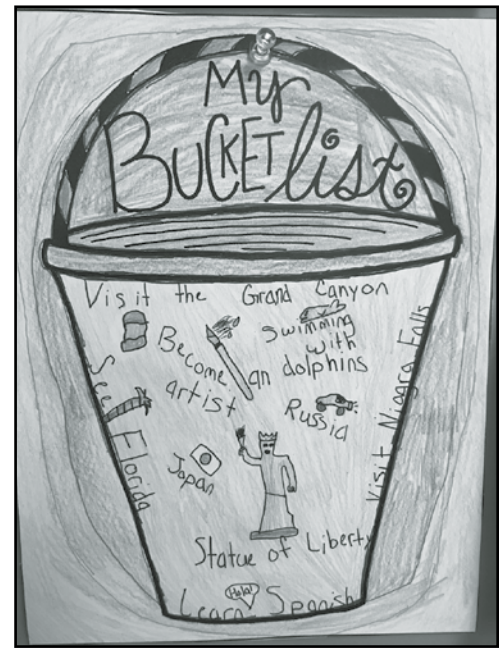 My
BUCKET list
Visit the Grand Canyon
Become an
artist
Swimming
with
dolphins
See Florida
Russia
Visit Niagara Falls
Japan
Statue of Liberty
Hola!
Learn Spanish